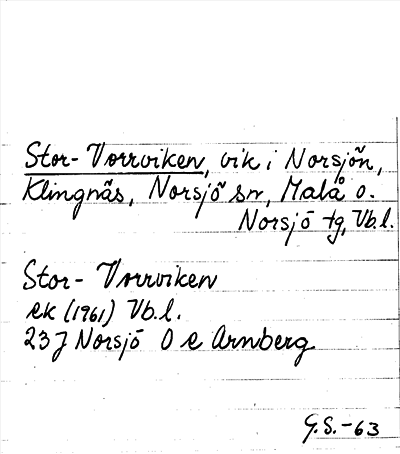 Stor-Vorrviken, vik i Norsjön,
Klingnäs, Norsjö sn, Malå o.
Norsjö tg, Vb.l.
Stor-Vorrviken
ek (1961) Vb.l.
23J Norsjö O e Arnberg
G.S.-63